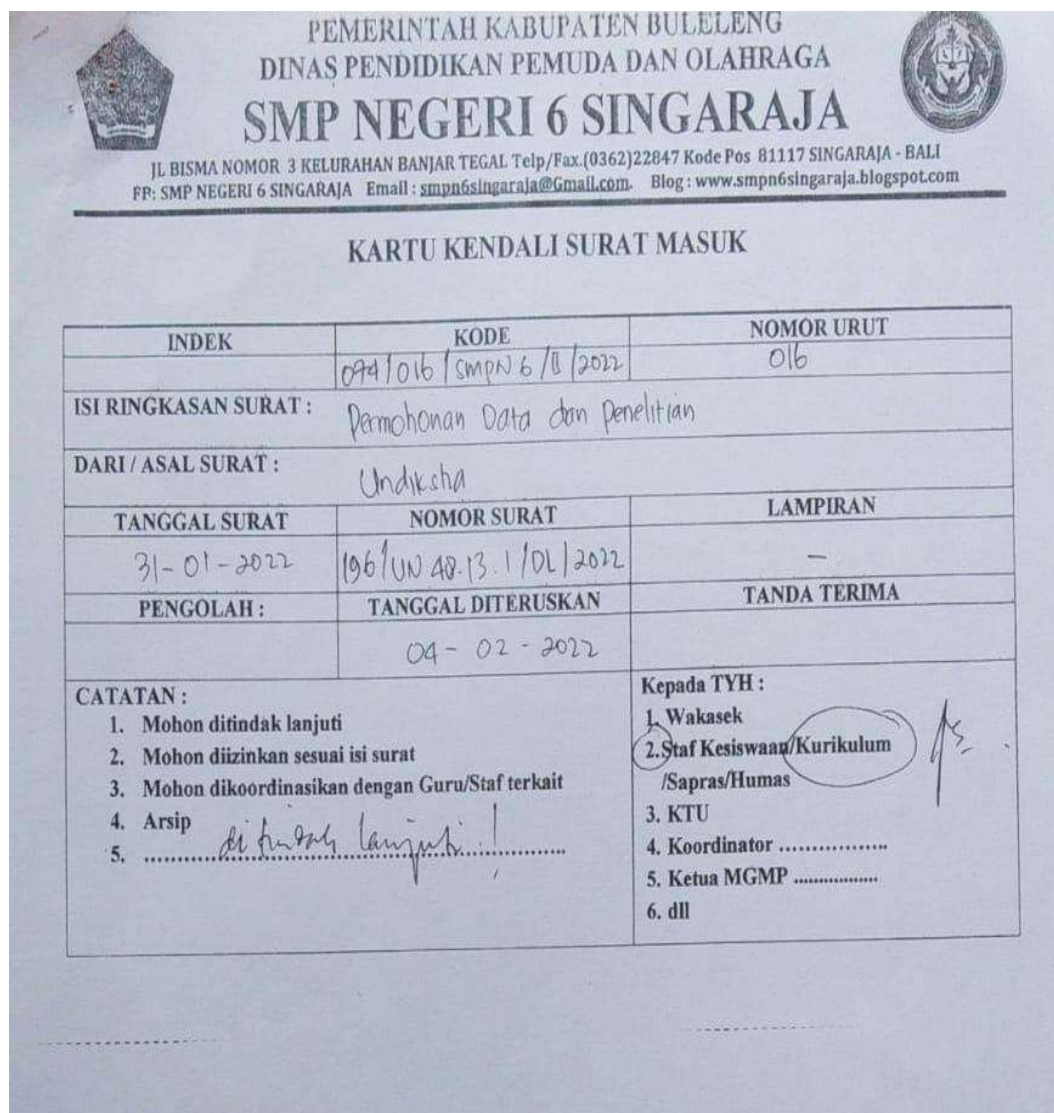 PEMERINTAH KABUPATEN BULELENG
DINAS PENDIDIKAN PEMUDA DAN OLAHRAGA
SMP NEGERI 6 SINGARAJA
JL BISMA NOMOR 3 KELURAHAN BANJAR TEGAL Telp/Fax.(0362)22847 Kode Pos 81117 SINGARAJA - BALI
FP: SMP NEGERI 6 SINGARAJA Email : smpn6singaraja@Gmail.com. Blog : www.smpn6singaraja.blogspot.com
KARTU KENDALI SURAT MASUK
INDEK KODE NOMOR URUT
094/016/SMPN 6/II/2022 016
ISI RINGKASAN SURAT : Permohonan Data dan Penelitian
DARI / ASAL SURAT : Undiksha
TANGGAL SURAT NOMOR SURAT LAMPIRAN
31-01-2022 196/UN 48.13.1/DL/2022 —
PENGOLAH : TANGGAL DITERUSKAN TANDA TERIMA
04 - 02 - 2022
CATATAN :
1. Mohon ditindak lanjuti
2. Mohon diizinkan sesuai isi surat
3. Mohon dikoordinasikan dengan Guru/Staf terkait
4. Arsip
5. di tindak lanjuti !
Kepada TYH :
1. Wakasek
2.Staf Kesiswaan/Kurikulum
/Sapras/Humas
3. KTU
4. Koordinator .................
5. Ketua MGMP .................
6. dll